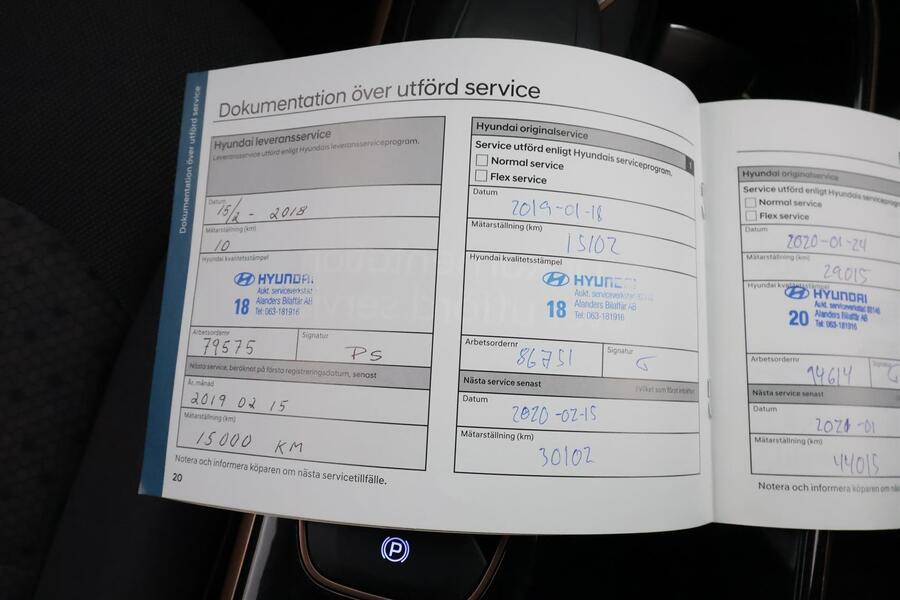 Dokumentation över utförd service
Dokumentation över utförd service
Hyundai leveransservice
Leveransservice utförd enligt Hyundais leveransserviceprogram.
Datum
15/2 - 2018
Mätarställning (km)
10
Hyundai kvalitetsstämpel
HYUNDAI
Aukt. serviceverkstad
18 Alanders Bilaffär AB
Tel: 063-181916
Arbetsordernr
79575
Signatur
PS
Nästa service, beräknat på första registreringsdatum, senast
År, månad
2019 02 15
Mätarställning (km)
15000 KM
Notera och informera köparen om nästa servicetillfälle.
20
Hyundai originalservice
Service utförd enligt Hyundais serviceprogram.
1
Normal service
Flex service
Datum
2019-01-18
Mätarställning (km)
15102
Hyundai kvalitetsstämpel
HYUNDAI
Aukt. serviceverkstad
18 Alanders Bilaffär AB
Tel: 063-181916
Arbetsordernr
86751
Signatur
G
Nästa service senast
(Vilket som först inträffar)
Datum
2020-02-15
Mätarställning (km)
30102
Hyundai originalservice
Service utförd enligt Hyundais serviceprog
Normal service
Flex service
Datum
2020-01-24
Mätarställning (km)
29015
Hyundai kvalitetsstämpel
HYUNDAI
Aukt. serviceverkstad
20 Alanders Bilaffär AB
Tel: 063-181916
Arbetsordernr
94614
Signatur
G
Nästa service senast
Datum
2021-01
Mätarställning (km)
44015
Notera och informera köparen om
P